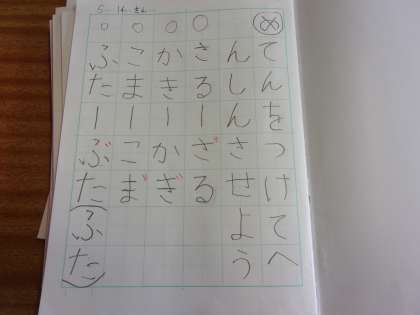 め てんをつけてへ
んしんさせよう
○ さるーざる
○ かきーかぎ
○ こまーこま゛
○ ふたーぶた(ふた)